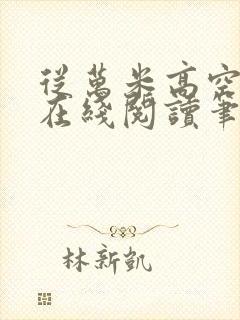 從萬米高空
在綫閱讀筆
林新凱